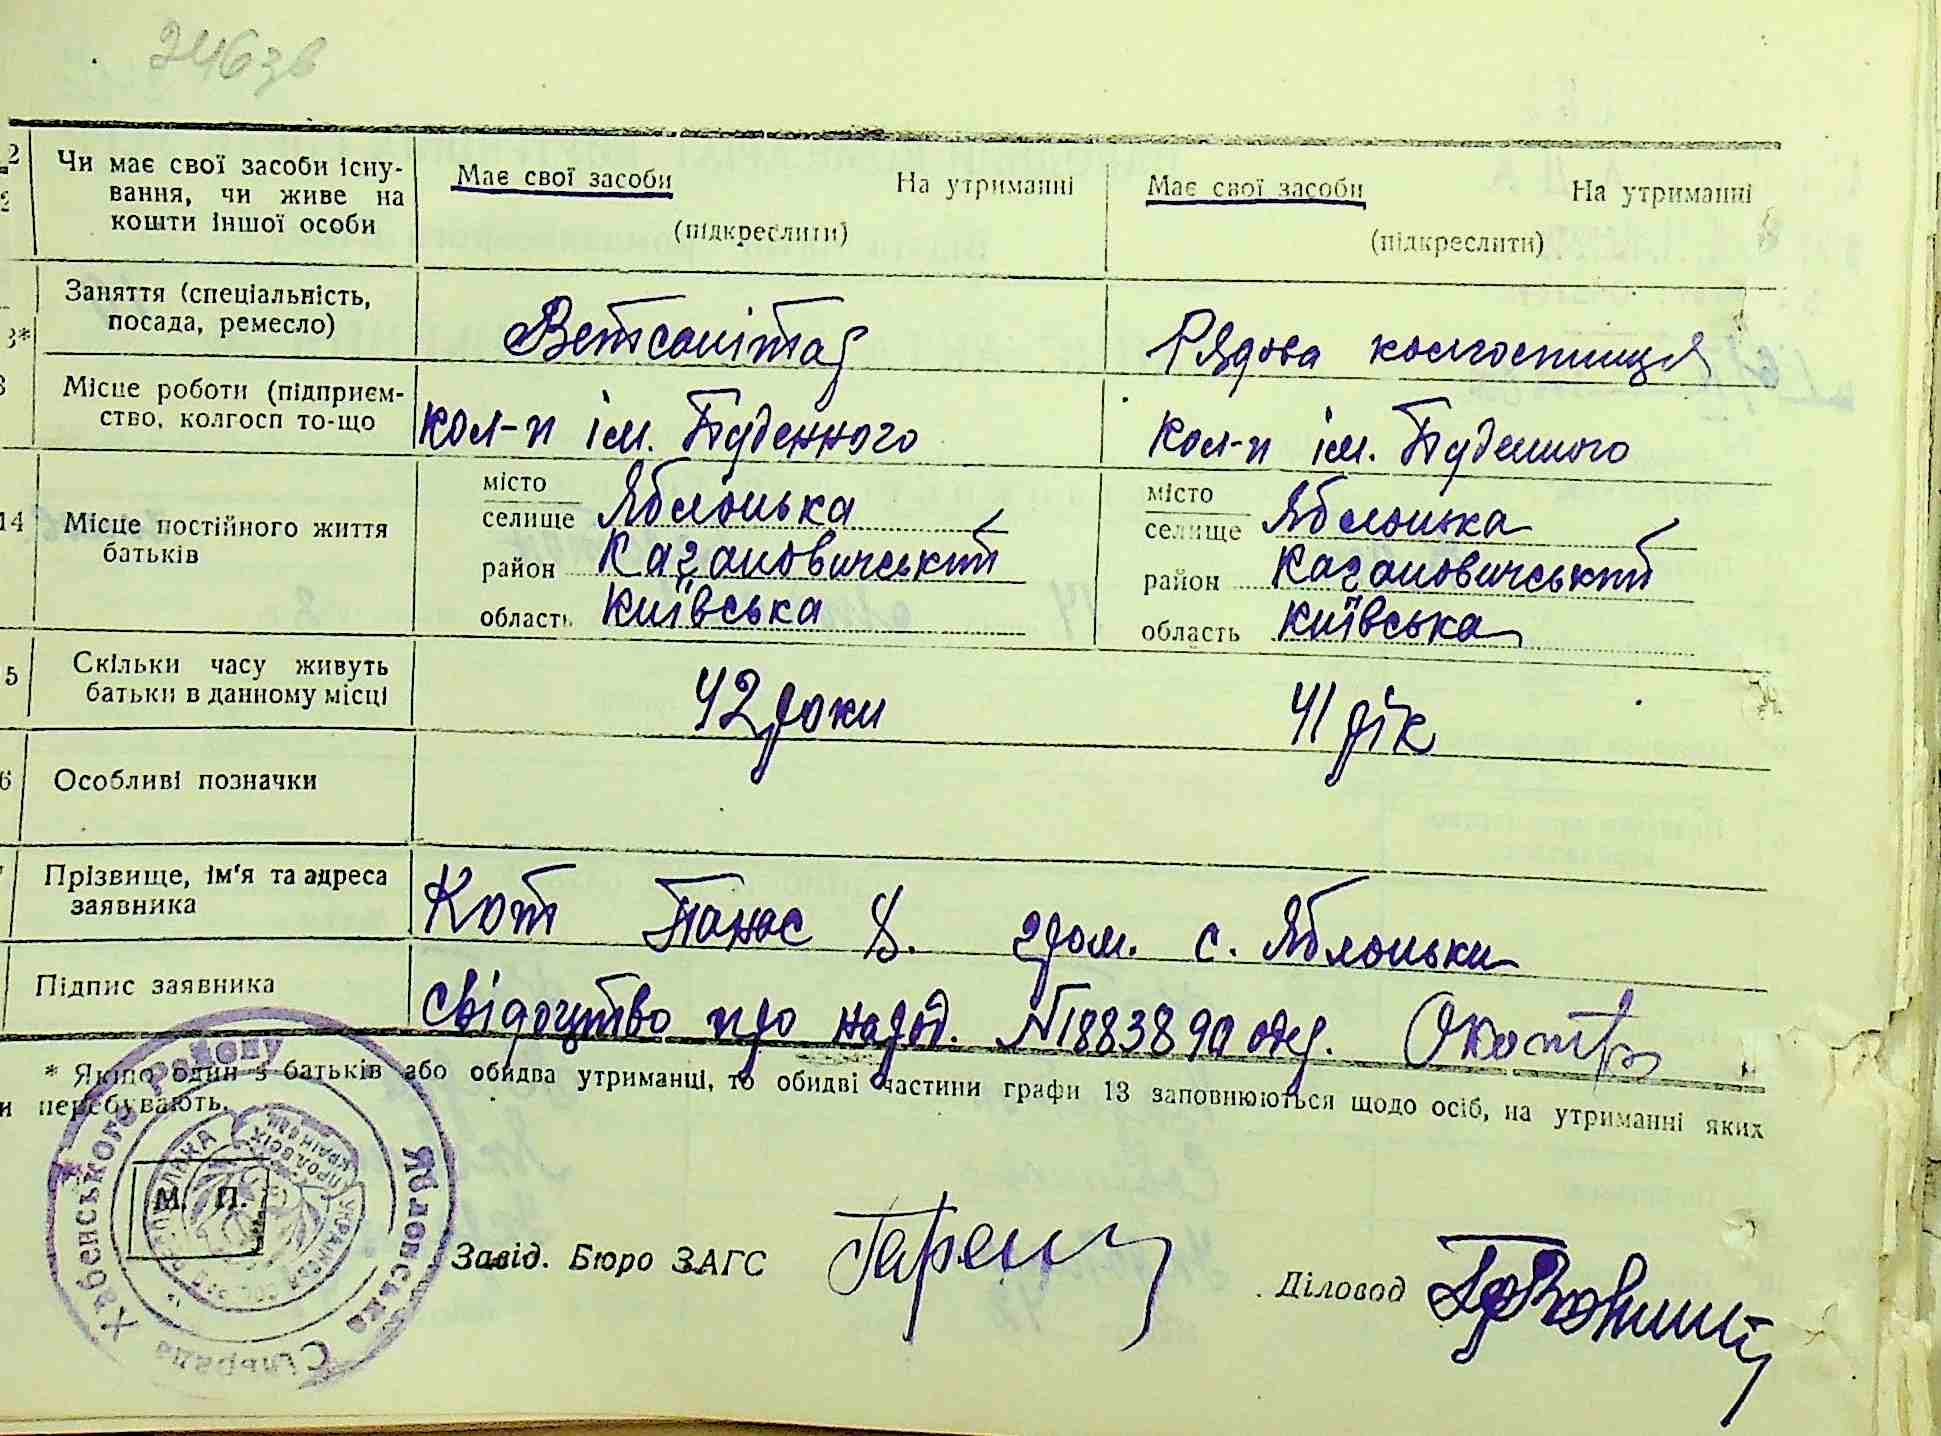 246зв
Чи має свої засоби існу-
вання, чи живе на
кошти іншої особи
Має свої засоби На утриманні
(підкреслити)
Має свої засоби На утриманні
(підкреслити)
Заняття (спеціальність,
посада, ремесло)
Ветсанітар
Рядова колгоспниця
Місце роботи (підприєм-
ство, колгосп то-що
кол-п ім. Будённого
кол-п ім. Буденного
14
Місце постійного життя
батьків
місто
селище Яблонька
район Кагановичський
область Київська
місто
селище Яблонька
район Кагановичський
область Київська
5
Скільки часу живуть
батьки в данному місці
42 роки
41 рік
6
Особливі позначки
Прізвище, ім'я та адреса
заявника
Кот Панас Я. гром. с. Яблоньки
Підпис заявника
Свідоцтво про народ. №1883890 одер.
* Якщо один з батьків або обидва утриманці, то обидві частини графи 13 заповнюються щодо осіб, на утриманні яких
и перебувають.
М. П.
Яблонська Сільрада Хабенського Району
Завід. Бюро ЗАГС
Діловод